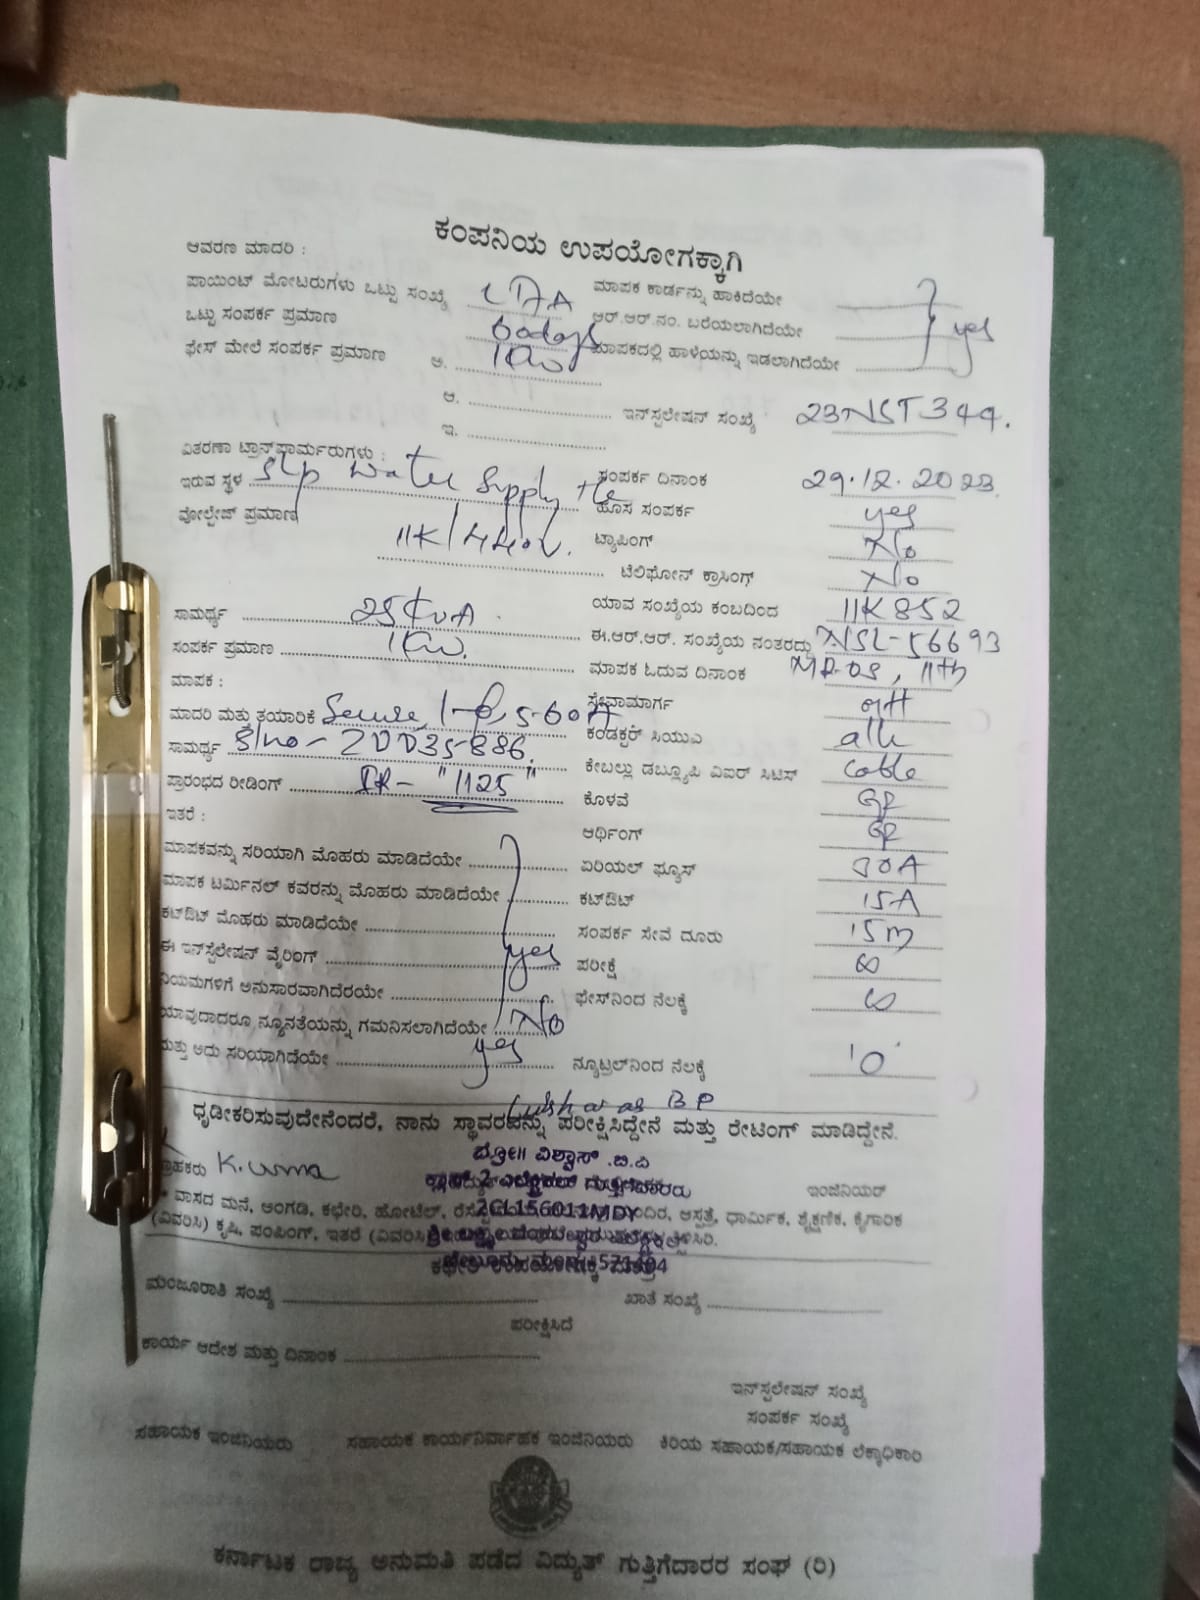 ಕಂಪನಿಯ ಉಪಯೋಗಕ್ಕಾಗಿ
ಆವರಣ ಮಾದರಿ :
ಪಾಯಿಂಟ್ ಮೋಟರುಗಳು ಒಟ್ಟು ಸಂಖ್ಯೆ ಮಾಪಕ ಕಾರ್ಡನ್ನು ಹಾಕಿದೆಯೇ
ಒಟ್ಟು ಸಂಪರ್ಕ ಪ್ರಮಾಣ ಆರ್.ಆರ್.ನಂ. ಬರೆಯಲಾಗಿದೆಯೇ yes
ಫೇಸ್ ಮೇಲೆ ಸಂಪರ್ಕ ಪ್ರಮಾಣ ಅ. 1KW ಮಾಪಕದಲ್ಲಿ ಹಾಳೆಯನ್ನು ಇಡಲಾಗಿದೆಯೇ
ಆ. ಇನ್‌ಸ್ಟಲೇಷನ್ ಸಂಖ್ಯೆ 23NST344.
ಇ.
ವಿತರಣಾ ಟ್ರಾನ್ಸ್‌ಫಾರ್ಮರುಗಳು :
ಇರುವ ಸ್ಥಳ Water Supply ಸಂಪರ್ಕ ದಿನಾಂಕ 29.12.2023
ವೋಲ್ಟೇಜ್ ಪ್ರಮಾಣ 11K/440V. ಹೊಸ ಸಂಪರ್ಕ yes
ಟ್ಯಾಪಿಂಗ್ No
ಟೆಲಿಫೋನ್ ಕ್ರಾಸಿಂಗ್ No
ಸಾಮರ್ಥ್ಯ 25KVA ಯಾವ ಸಂಖ್ಯೆಯ ಕಂಬದಿಂದ 11K852
ಸಂಪರ್ಕ ಪ್ರಮಾಣ 1KW. ಈ.ಆರ್.ಆರ್. ಸಂಖ್ಯೆಯ ನಂತರದ್ದು NSL-56693
ಮಾಪಕ : ಮಾಪಕ ಓದುವ ದಿನಾಂಕ 11th
ಮಾದರಿ ಮತ್ತು ತಯಾರಿಕೆ Secure, 5-60A ಸೇವಾಮಾರ್ಗ OH
ಸಾಮರ್ಥ್ಯ S/no- 2DD35886. ಕಂಡಕ್ಟರ್ ಸಿಯುಎ
ಪ್ರಾರಂಭದ ರೀಡಿಂಗ್ IR- "1125" ಕೇಬಲ್ಲು ಡಬ್ಲ್ಯೂಪಿ ವಿಐಆರ್ ಸಿಟಿಸ್ cable
ಇತರೆ : ಕೊಳವೆ
ಆರ್ಥಿಂಗ್
ಮಾಪಕವನ್ನು ಸರಿಯಾಗಿ ಮೊಹರು ಮಾಡಿದೆಯೇ ಏರಿಯಲ್ ಫ್ಯೂಸ್ 30A
ಮಾಪಕ ಟರ್ಮಿನಲ್ ಕವರನ್ನು ಮೊಹರು ಮಾಡಿದೆಯೇ ಕಟ್‌ಔಟ್ 15A
ಕಟ್‌ಔಟ್ ಮೊಹರು ಮಾಡಿದೆಯೇ ಸಂಪರ್ಕ ಸೇವೆ ದೂರು 15m
ಈ ಇನ್‌ಸ್ಟಲೇಷನ್ ವೈರಿಂಗ್ yes ಪರೀಕ್ಷೆ ∞
ನಿಯಮಗಳಿಗೆ ಅನುಸಾರವಾಗಿದೆರಯೇ ಫೇಸ್‌ನಿಂದ ನೆಲಕ್ಕೆ ∞
ಯಾವುದಾದರೂ ನ್ಯೂನತೆಯನ್ನು ಗಮನಿಸಲಾಗಿದೆಯೇ No
ಮತ್ತು ಅದು ಸರಿಯಾಗಿದೆಯೇ yes ನ್ಯೂಟ್ರಲ್‌ನಿಂದ ನೆಲಕ್ಕೆ '0'
ಧೃಡೀಕರಿಸುವುದೇನೆಂದರೆ, ನಾನು ಸ್ಥಾವರವನ್ನು ಪರೀಕ್ಷಿಸಿದ್ದೇನೆ ಮತ್ತು ರೇಟಿಂಗ್ ಮಾಡಿದ್ದೇನೆ.
ವಿಶ್ವಾಸ್ .ಬಿ.ಪಿ
ಗ್ರಾಹಕರು K. uma ಗುತ್ತಿಗೆದಾರರು ಇಂಜಿನಿಯರ್
* ವಾಸದ ಮನೆ, ಅಂಗಡಿ, ಕಛೇರಿ, ಹೋಟೆಲ್, 2CL156011MDY ಆಸ್ಪತ್ರೆ, ಧಾರ್ಮಿಕ, ಶೈಕ್ಷಣಿಕ, ಕೈಗಾರಿಕ
(ವಿವರಿಸಿ) ಕೃಷಿ, ಪಂಪಿಂಗ್, ಇತರೆ
ಮಂಜೂರಾತಿ ಸಂಖ್ಯೆ ಖಾತೆ ಸಂಖ್ಯೆ
ಪರೀಕ್ಷಿಸಿದೆ
ಕಾರ್ಯ ಆದೇಶ ಮತ್ತು ದಿನಾಂಕ
ಇನ್‌ಸ್ಟಲೇಷನ್ ಸಂಖ್ಯೆ
ಸಂಪರ್ಕ ಸಂಖ್ಯೆ
ಸಹಾಯಕ ಇಂಜಿನಿಯರು ಸಹಾಯಕ ಕಾರ್ಯನಿರ್ವಾಹಕ ಇಂಜಿನಿಯರು ಕಿರಿಯ ಸಹಾಯಕ/ಸಹಾಯಕ ಲೆಕ್ಕಾಧಿಕಾರಿ
ಕರ್ನಾಟಕ ರಾಜ್ಯ ಅನುಮತಿ ಪಡೆದ ವಿದ್ಯುತ್ ಗುತ್ತಿಗೆದಾರರ ಸಂಘ (ರಿ)